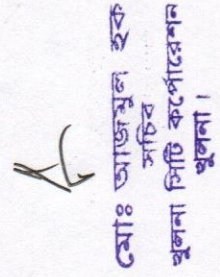 মোঃ আজমুল হক
সচিব
খুলনা সিটি কর্পোরেশন
খুলনা।